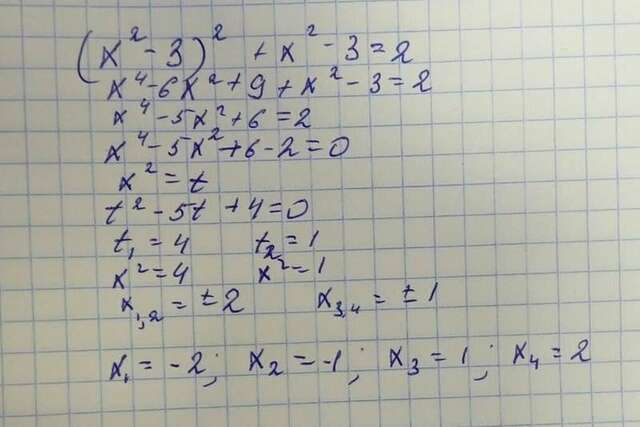 (x² - 3)² + x² - 3 = 2
x⁴ - 6x² + 9 + x² - 3 = 2
x⁴ - 5x² + 6 = 2
x⁴ - 5x² + 6 - 2 = 0
x² = t
t² - 5t + 4 = 0
t₁ = 4 t₂ = 1
x² = 4 x² = 1
x₁,₂ = ± 2 x₃,₄ = ± 1
x₁ = -2; x₂ = -1; x₃ = 1; x₄ = 2